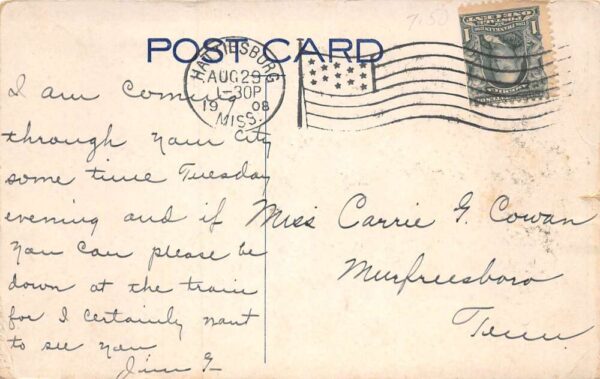 7.50
POST CARD
HATTIESBURG
AUG 29
1-30P
1908
MISS.
1
1
I am coming
through your city
some time Tuesday
evening and if
you can please be
down at the train
for I certainly want
to see you
Jim G
Miss Carrie G. Cowan
Murfreesboro
Tenn.